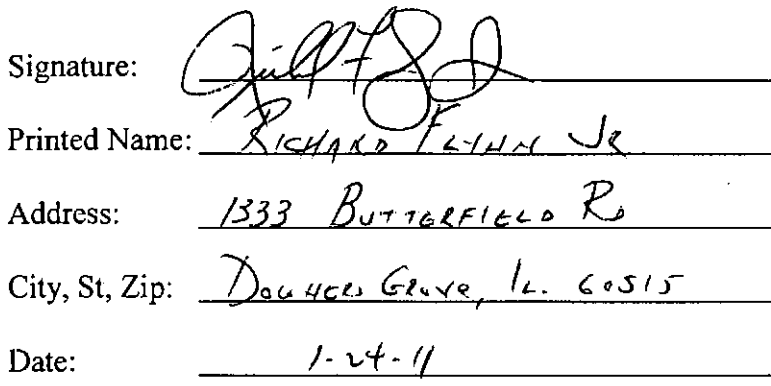 Signature:
Printed Name: RICHARD FLYNN JR
Address: 1333 BUTTERFIELD RD
City, St, Zip: DOWNERS GROVE, IL. 60515
Date: 1-24-11